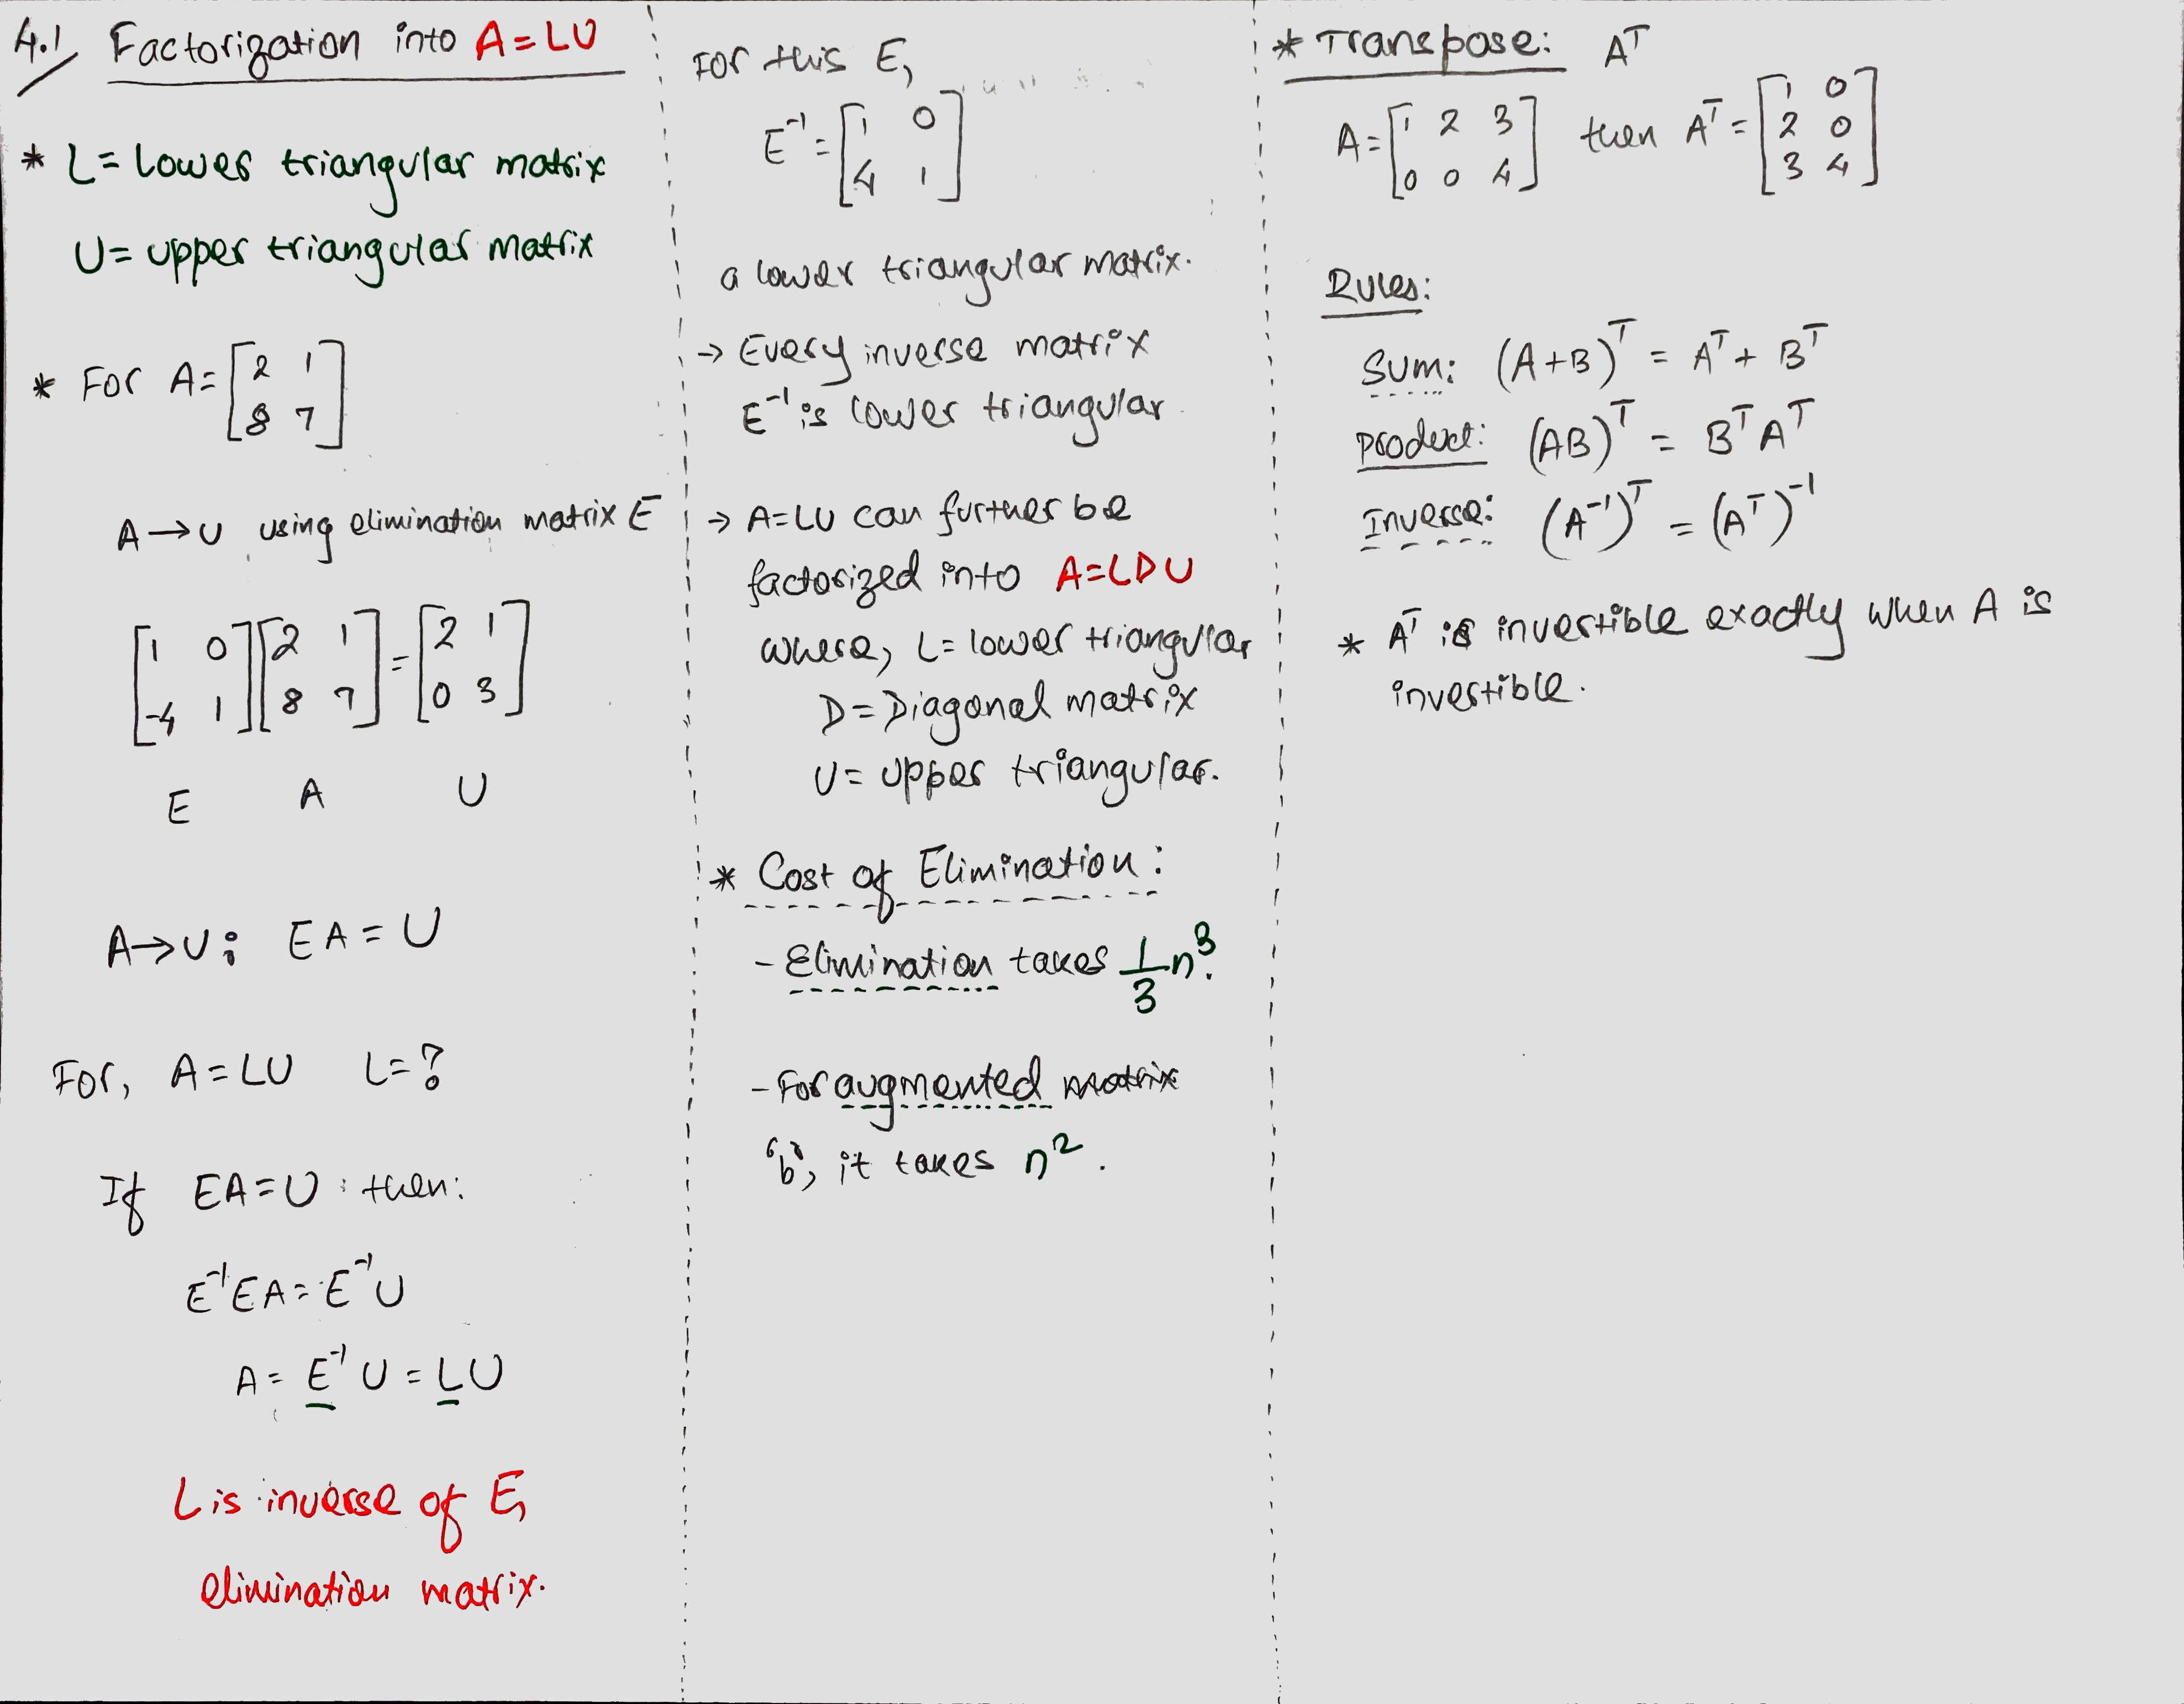 4.1 Factorization into A=LU
* L= Lower triangular matrix
U= upper triangular matrix
* For A= [2 1
8 7]
A→U using elimination matrix E
[1 0 [2 1 = [2 1
-4 1] 8 7] 0 3]
E A U
A→U: EA = U
For, A=LU L=?
If EA=U then:
E⁻¹EA = E⁻¹U
A = E⁻¹ U = LU
L is inverse of E,
elimination matrix.
For this E,
E⁻¹ = [1 0
4 1]
a lower triangular matrix.
→ Every inverse matrix
E⁻¹ is lower triangular
→ A=LU can further be
factorized into A=LDU
where, L= lower triangular
D= Diagonal matrix
U= upper triangular.
* Cost of Elimination:
- Elimination takes 1/3 n³.
- For augmented matrix
'b', it takes n².
* Transpose: Aᵀ
A= [1 2 3 then Aᵀ = [1 0
0 0 4] 2 0
3 4]
Rules:
Sum: (A+B)ᵀ = Aᵀ + Bᵀ
Product: (AB)ᵀ = BᵀAᵀ
Inverse: (A⁻¹)ᵀ = (Aᵀ)⁻¹
* Aᵀ is invertible exactly when A is
invertible.